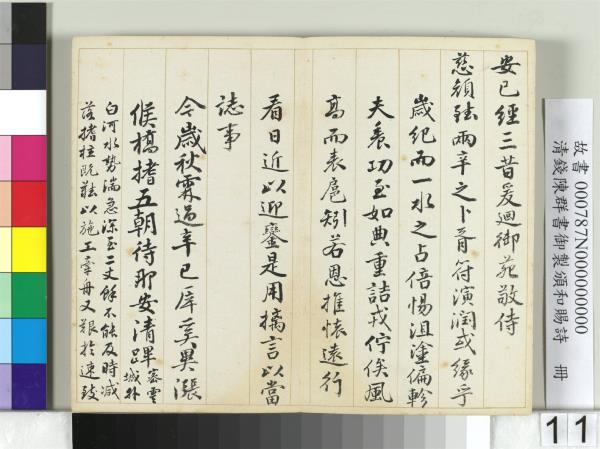 安已經三昔爰迴御苑敬侍
慈顏躔兩辛之卜育符演潤或緣乎
歲紀而一水之占倍惕沮塗偏軫
夫農功至如典重詰戎佇俟風
高而表扈矧若恩推懷遠行
看日近以迎鑾是用摛言以當
誌事
今歲秋霖過辛巳厓冥異漲
候橋搘五朝待那安清蹕密雲城外
白河水勢湍急深至二丈餘不能及時減
落搘柱既難以施工牽舟又艱於速致
故書 000787N000000000
清錢陳群書御製頒和賜詩 冊
11